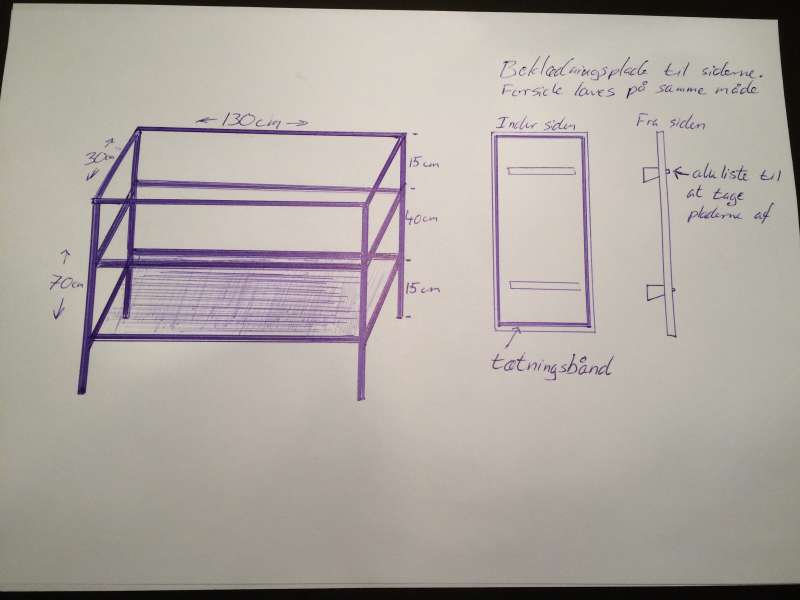 Beklædningsplade til siderne.
Forside laves på samme måde
130cm
30cm
15cm
40cm
70cm
15cm
Inder siden
Fra siden
alu liste til
at tage
pladerne af
tætningsbånd